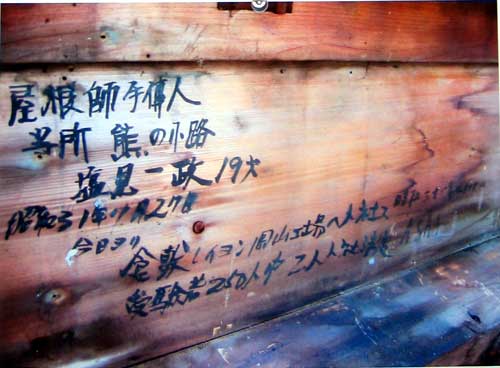 屋根師手傳人
当所 熊の小路
塩見一政 19才
昭和31年7月27日
今日ヨリ
倉敷レイヨン岡山工場へ入社ス
受験者250人が 2人入社